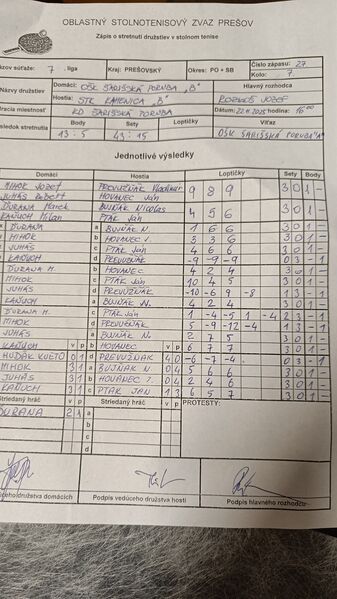 OBLASTNÝ STOLNOTENISOVÝ ZVÄZ PREŠOV
Zápis o stretnutí družstiev v stolnom tenise
zov súťaže: 7. liga Kraj: PREŠOVSKÝ Okres: PO + SB Číslo zápasu: 27
Kolo: 7
Domáci: OŠK ŠARIŠSKÁ PORUBA „B" Hlavný rozhodca
Hostia: STK KAMENICA „B"
hracia miestnosť KD ŠARIŠSKÁ PORUBA Dátum, hodina 22.11.2025
sledok stretnutia Body Sety Loptičky Víťaz
13:5 43:15 OŠK ŠARIŠSKÁ PORUBA
Jednotlivé výsledky
Domáci Hostia Loptičky Sety Body
MIHOK Jozef PREVUZŇÁK Vladimír 9 8 9 3 0 1 -
JUHÁS Robert HOVANEC Ján
ĎURANA Marek BUJŇÁK Nicolas 4 5 6 3 0 1 -
KAŇUCH Milan PTÁK Ján
ĎURANA a BUJŇÁK N. 1 6 6 3 0 1 -
MIHOK b HOVANEC 3 3 6 3 0 1 -
JUHÁS c PTÁK Ján 4 6 6 3 0 1 -
KAŇUCH d PREVUZŇÁK -9 -9 -9 0 3 - 1
ĎURANA M. b HOVANEC 4 2 4 3 0 1 -
MIHOK c PTÁK Ján 10 4 5 3 0 1 -
JUHÁS d PREVUZŇÁK -10 -6 9 -8 1 3 - 1
KAŇUCH a BUJŇÁK N. 4 2 4 3 0 1 -
ĎURANA M. c PTÁK Ján 1 -4 -5 1 -4 2 3 - 1
MIHOK d PREVUZŇÁK 5 -9 -12 -4 1 3 - 1
JUHÁS a BUJŇÁK N. 2 7 5 3 0 1 -
KAŇUCH v p b HOVANEC v p 6 7 7 3 0 1 -
HUDÁK KVETO 0 1 d PREVUZŇÁK 4 0 -6 -7 -4 0 3 - 1
MIHOK 3 1 a BUJŇÁK N. 0 4 5 6 6 3 0 1 -
JUHÁS 3 1 b HOVANEC 2 4 6 3 0 1 -
KAŇUCH 3 1 c PTÁK JÁN 1 3 6 5 7 3 0 1 -
Striedaný hráč v p Striedaný hráč v p PROTESTY:
ĎURANA 2 1 a
b
c
d
úceho družstva domácich Podpis vedúceho družstva hostí Podpis hlavného rozhodcu